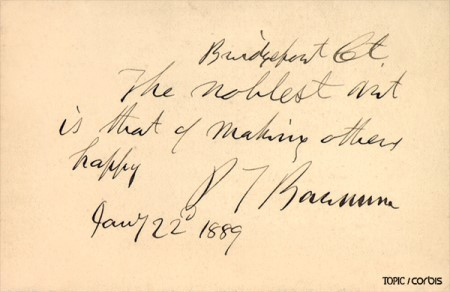 Bridgeport Ct.
The noblest art
is that of making others
happy P T Barnum
Jany 22d 1889
TOPIC / corbis